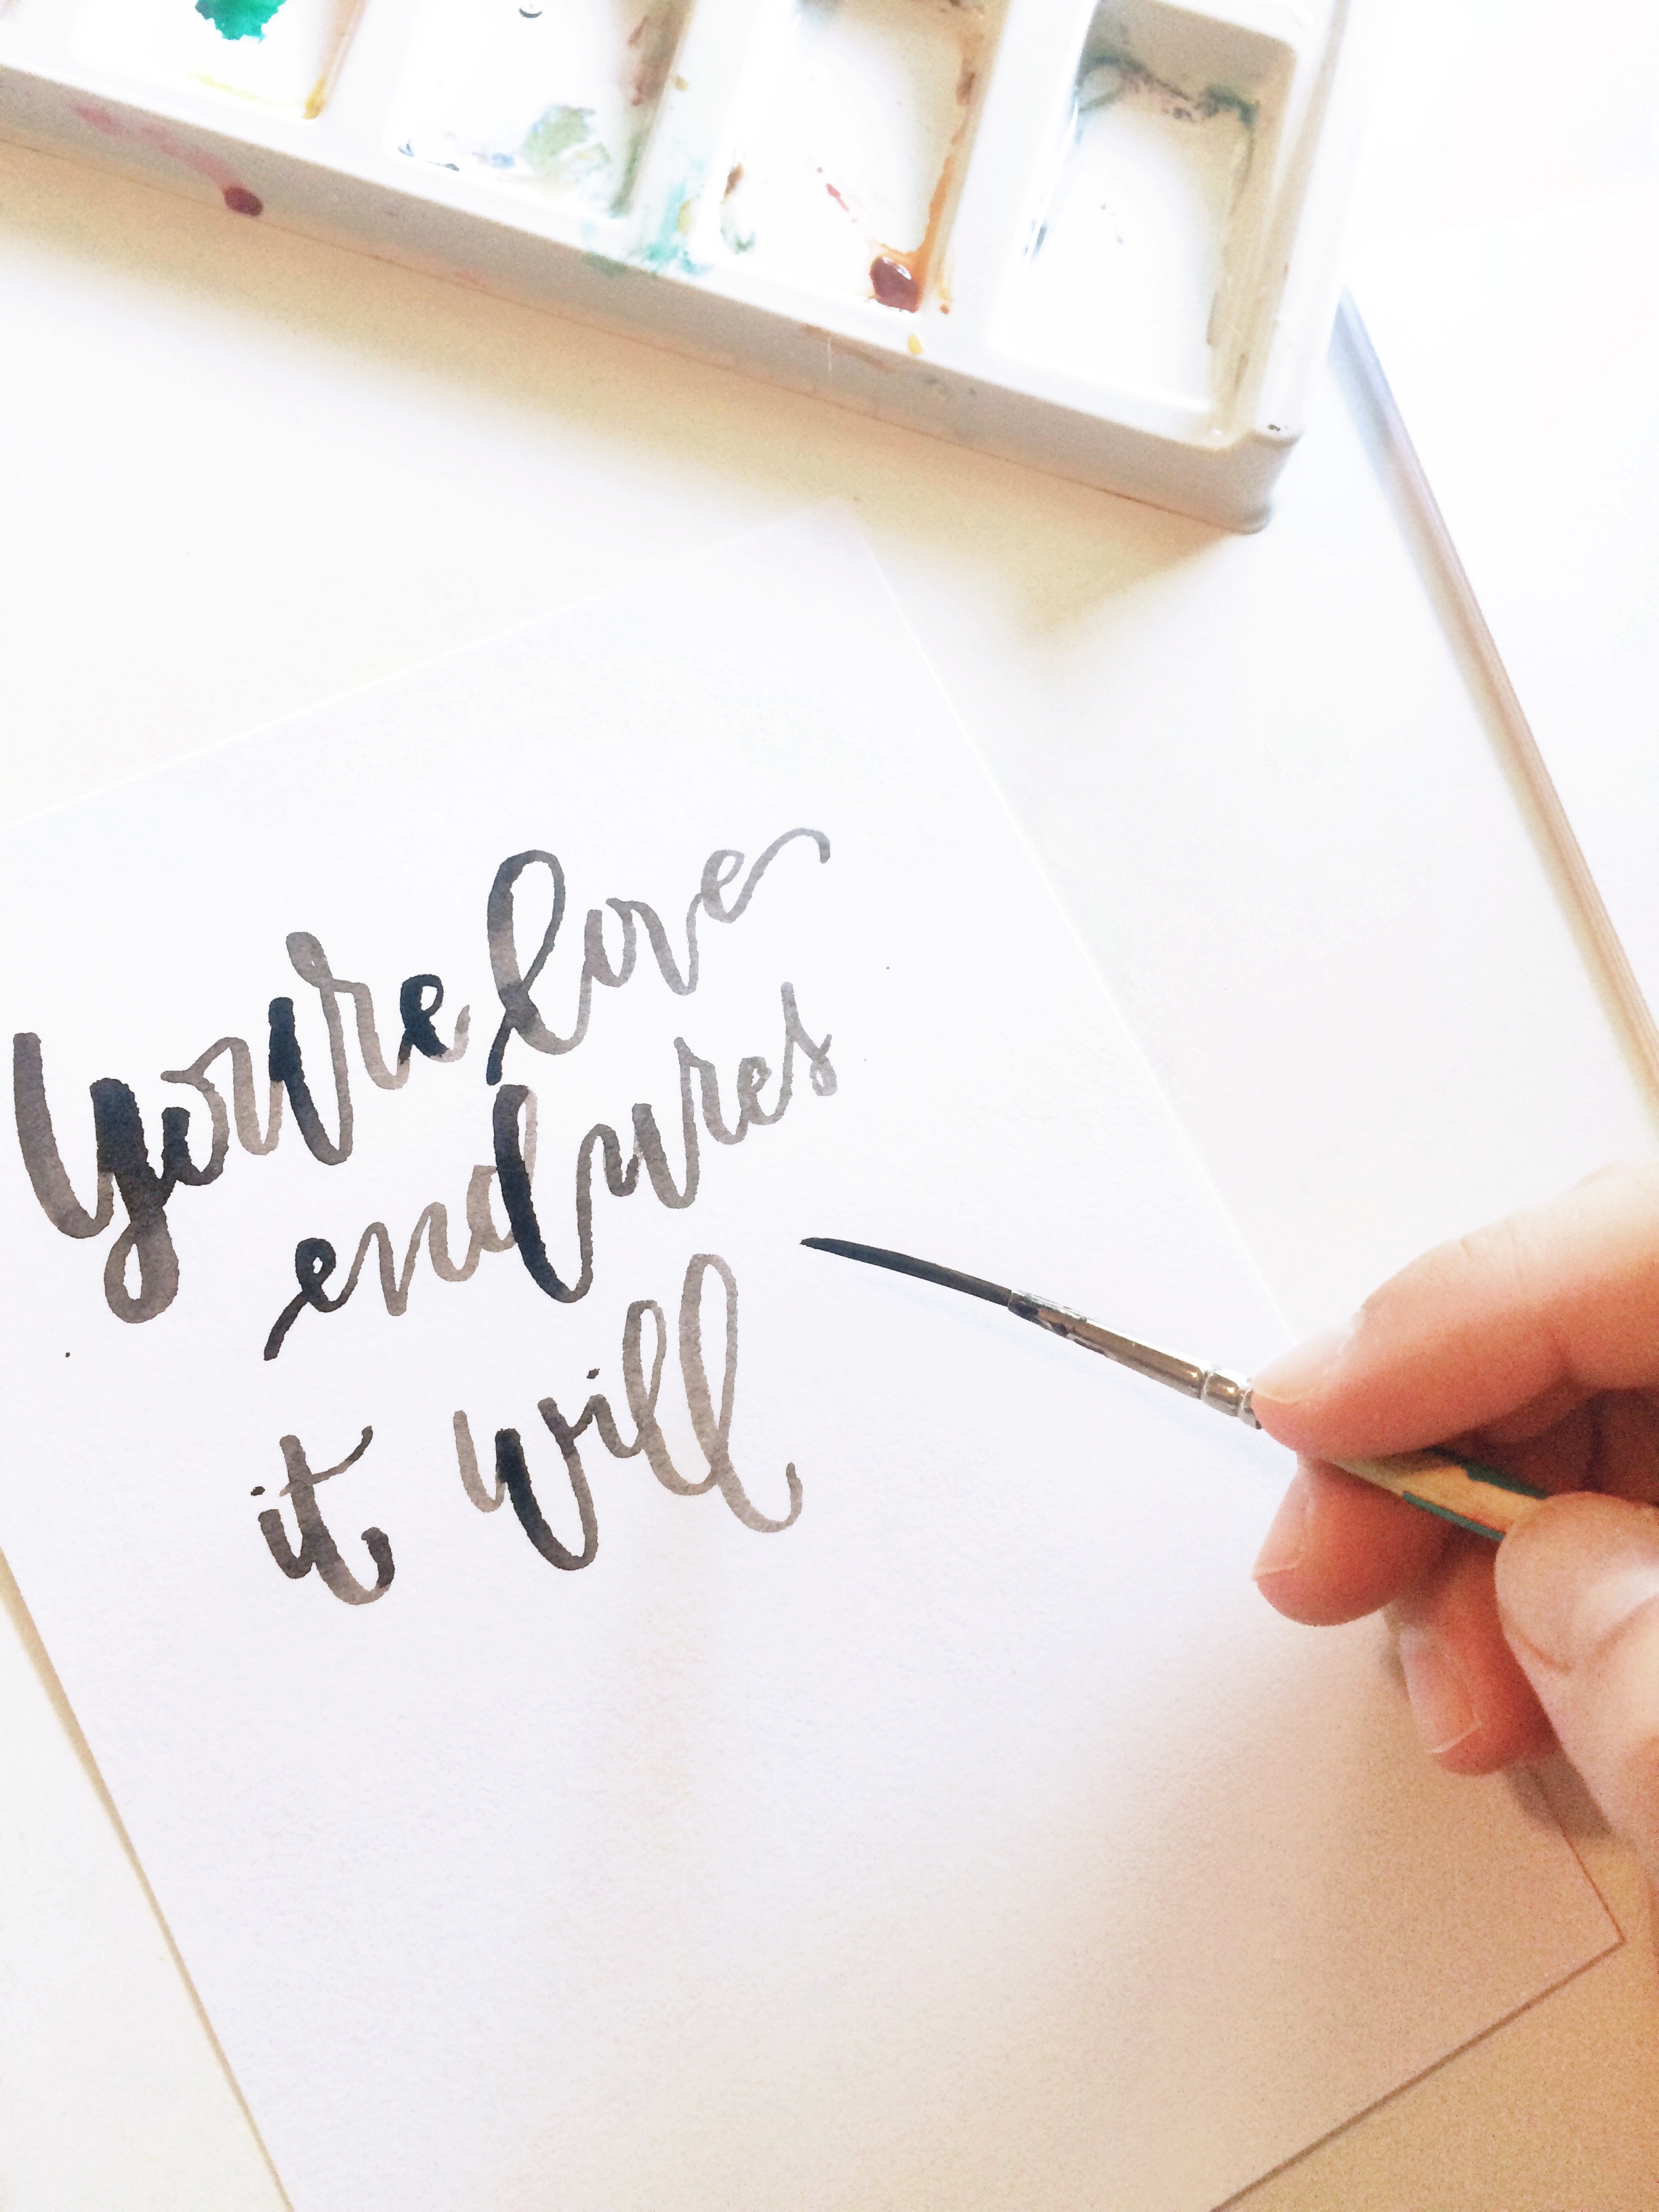 you're love
endures
it will